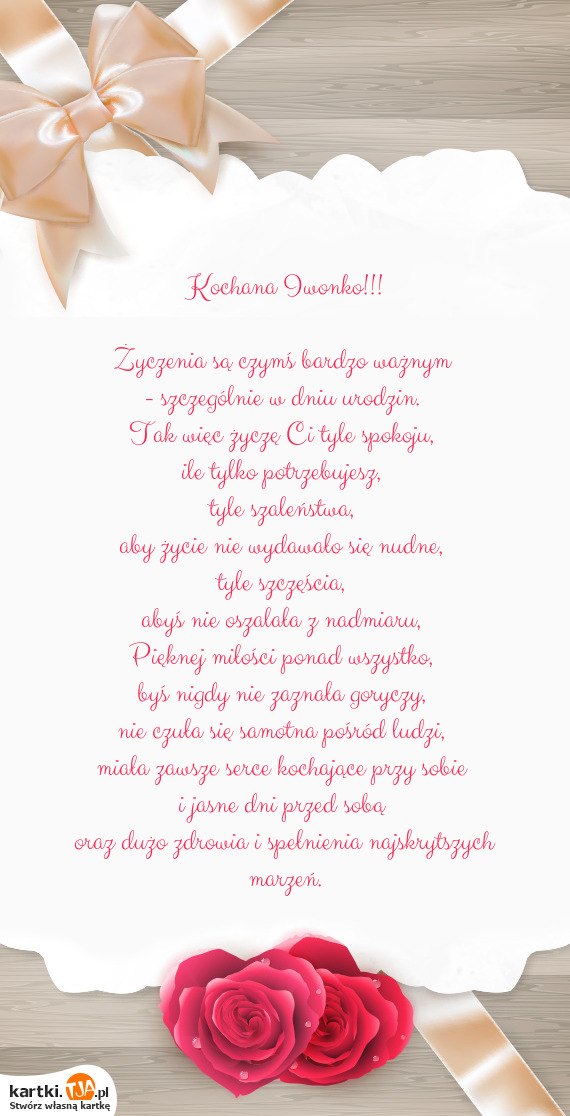 Kochana Iwonko!!!
Życzenia są czymś bardzo ważnym
- szczególnie w dniu urodzin.
Tak więc życzę Ci tyle spokoju,
ile tylko potrzebujesz,
tyle szaleństwa,
aby życie nie wydawało się nudne,
tyle szczęścia,
abyś nie oszalała z nadmiaru,
Pięknej miłości ponad wszystko,
byś nigdy nie zaznała goryczy,
nie czuła się samotna pośród ludzi,
miała zawsze serce kochające przy sobie
i jasne dni przed sobą
oraz dużo zdrowia i spełnienia najskrytszych
marzeń.
kartki.TJA.pl
Stwórz własną kartkę